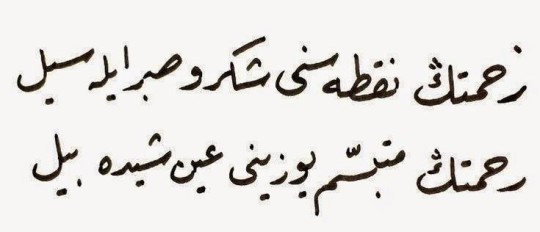 زحمتڭ نقطه سنى شكر و صبر ايله سيل
رحمتڭ متبسّم يوزينى عين شيده بيل